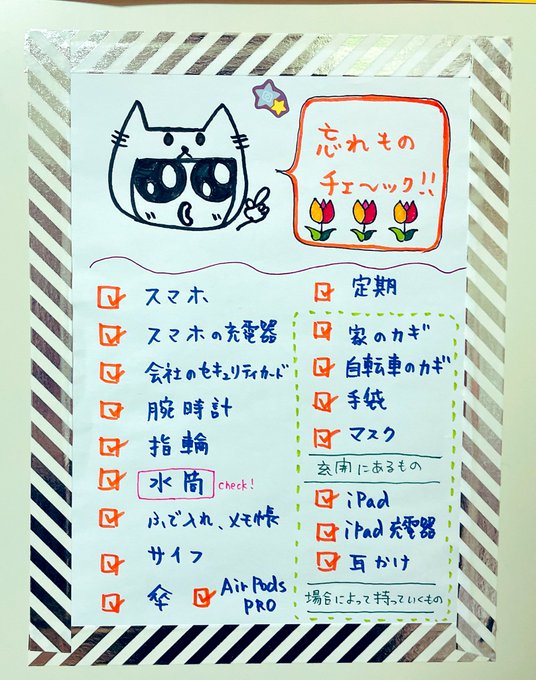 忘れもの
チェ〜ック!!
スマホ
スマホの充電器
会社のセキュリティカード
腕時計
指輪
水筒 check!
ふで入れ、メモ帳
サイフ
傘
AirPods
PRO
定期
家のカギ
自転車のカギ
手袋
マスク
玄関にあるもの
iPad
iPad充電器
耳かけ
場合によって持っていくもの